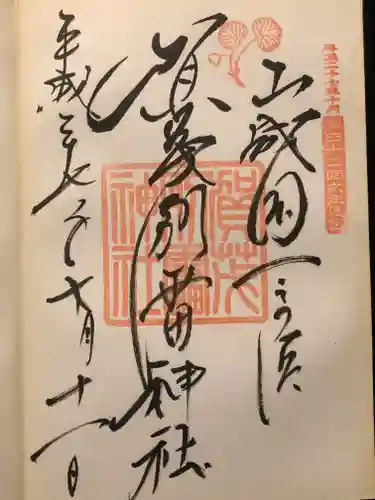 山城国一之宮
賀茂別雷神社
平成二七年十月十一日
平成二十七年十月
第四十二回式年遷宮
賀茂別雷神社